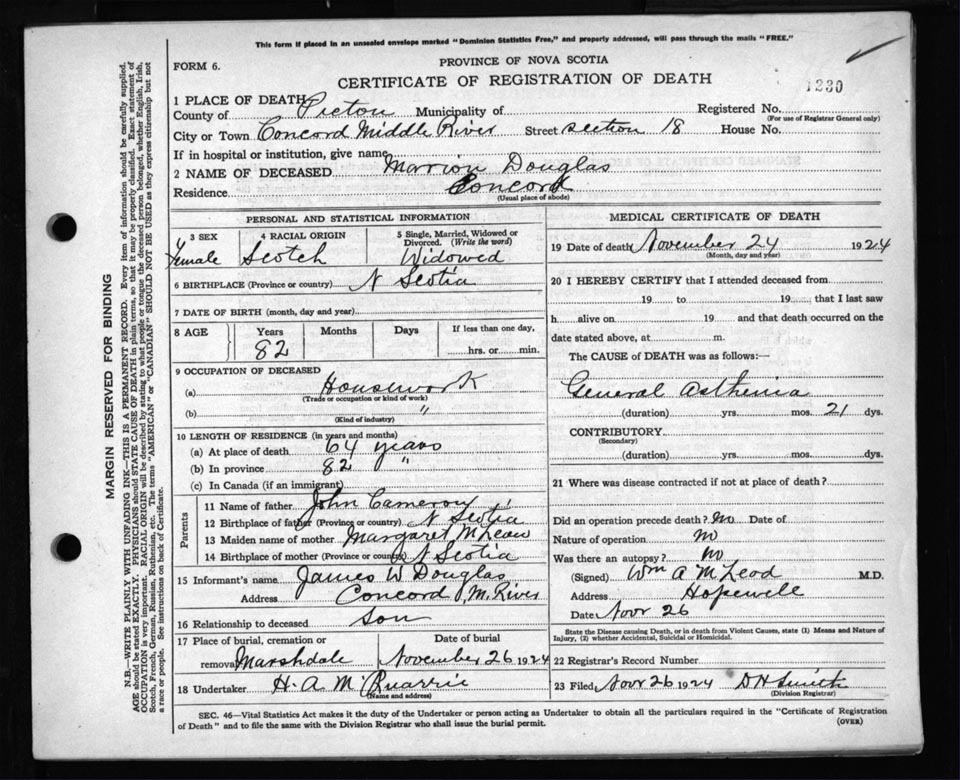 This form if placed in an unsealed envelope marked "Dominion Statistics Free," and properly addressed, will pass through the mails "FREE."
FORM 6.
PROVINCE OF NOVA SCOTIA
CERTIFICATE OF REGISTRATION OF DEATH
1230
1 PLACE OF DEATH
County of Pictou Municipality of Registered No.
(For use of Registrar General only)
City or Town Concord Middle River Street section 18 House No.
If in hospital or institution, give name
2 NAME OF DECEASED Marrion Douglas
Residence Concord
(Usual place of abode)
PERSONAL AND STATISTICAL INFORMATION
3 SEX 4 RACIAL ORIGIN 5 Single, Married, Widowed or Divorced. (Write the word)
Female Scotch Widowed
6 BIRTHPLACE (Province or country) N Scotia
7 DATE OF BIRTH (month, day and year)
8 AGE Years Months Days If less than one day,
82 hrs. or min.
9 OCCUPATION OF DECEASED
(a) Housework
(Trade or occupation or kind of work)
(b) "
(Kind of industry)
10 LENGTH OF RESIDENCE (in years and months)
(a) At place of death 64 years
(b) In province 82 "
(c) In Canada (if an immigrant)
Parents
11 Name of father John Cameron
12 Birthplace of father (Province or country) N Scotia
13 Maiden name of mother Margaret McLean
14 Birthplace of mother (Province or country) N Scotia
15 Informant's name James W Douglas
Address Concord, M. River
16 Relationship to deceased Son
17 Place of burial, cremation or Date of burial
removal Marshdale November 26 1924
18 Undertaker H. A McQuarrie
(Name and address)
MEDICAL CERTIFICATE OF DEATH
19 Date of death November 24 1924
(Month, day and year)
20 I HEREBY CERTIFY that I attended deceased from
19 to 19 , that I last saw
h alive on 19 and that death occurred on the
date stated above, at m.
The CAUSE of DEATH was as follows:—
General Asthenia
(duration) yrs. mos. 21 dys.
CONTRIBUTORY
(Secondary)
(duration) yrs. mos. dys.
21 Where was disease contracted if not at place of death?
Did an operation precede death? No Date of
Nature of operation No
Was there an autopsy? No
(Signed) Wm A McLeod M.D.
Address Hopewell
Date Novr 26
State the Disease causing Death, or in death from Violent Causes, state (1) Means and Nature of
Injury, (2) whether Accidental, Suicidal or Homicidal.
22 Registrar's Record Number
23 Filed Novr 26 1924 D H Smith
(Division Registrar)
SEC. 46—Vital Statistics Act makes it the duty of the Undertaker or person acting as Undertaker to obtain all the particulars required in the "Certificate of Registration
of Death" and to file the same with the Division Registrar who shall issue the burial permit.
(OVER)
MARGIN RESERVED FOR BINDING
N.B.—WRITE PLAINLY WITH UNFADING INK—THIS IS A PERMANENT RECORD. Every item of information should be carefully supplied.
AGE should be stated EXACTLY. PHYSICIANS should STATE CAUSE OF DEATH in plain terms, so that it may be properly classified. Exact statement of
OCCUPATION is very important. RACIAL ORIGIN will be described by stating to what people or tongue the deceased person belonged, whether English, Irish,
Scotch, French, German, Russian, Ruthenian, etc. The terms "AMERICAN" or "CANADIAN" SHOULD NOT BE USED as they express citizenship but not
a race or people. See instructions on back of Certificate.